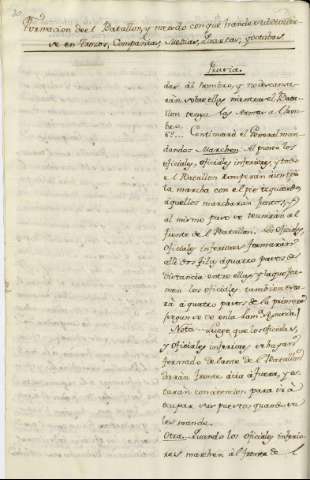 Formacion de el Batallon, y modo con que hande redoblar
se en Tercios, Compañias, Mitades, Quartas, y octabas.
Quarta.
dar al hombro, y no descansa
rán sobre ellas mientras el Bata
llon tenga las Armas al hom
bro
5.. Continuará el General man
dando = Marchen. Al punto los
oficiales, oficiales inferiores, y todo
el Batallon romperán a un tpo
la marcha con el pie izquierdo
aquellos marcharán juntos, y
al mismo paso se reunirán al
frente de el Batallon. Los oficiales,
oficiales inferiores formarán
alli dos filas à quatro pasos de
distancia entre ellas, y la que for
men los oficiales, tambien esta
rà à quatro pasos de la primera
Nota. Luego que los oficiales,
y oficiales inferiores se hayan
formado delante de el Batallon
darán frente àcia à fuera, y es
tarán con atencion para ir à
ocupar sus puestos quando se
les mande.
Otra. Quando los oficiales inferio
res marchen àl frente de el